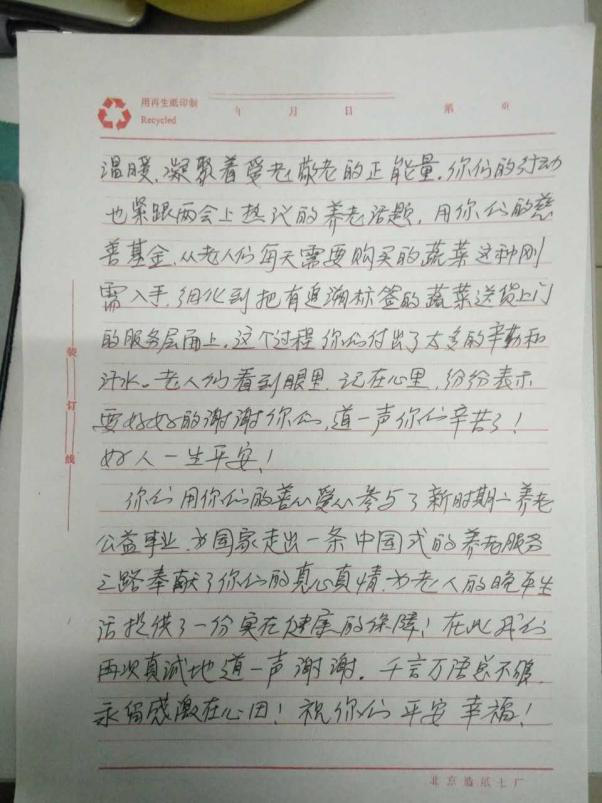 用再生纸印制
Recycled
年 月 日 第 页
温暖，凝聚着爱老敬老的正能量。你们的行动
也紧跟两会上热议的养老话题，用你们的慈
善基金，从老人们每天需要购买的蔬菜这种刚
需入手，细化到把有追溯标签的蔬菜送货上门
的服务层面上。这个过程你们付出了太多的辛勤和
汗水。老人们看到眼里，记在心里，纷纷表示
要好好的谢谢你们，道一声你们辛苦了！
好人一生平安！
你们用你们的善心爱心参与了新时期养老
公益事业，为国家走出一条中国式的养老服务
之路奉献了你们的真心真情，为老人的晚年生
活提供了一份实在健康的保障！在此我们
再次真诚地道一声谢谢。千言万语总不够，
永留感激在心田！祝你们平安幸福！
装订线
北京造纸七厂